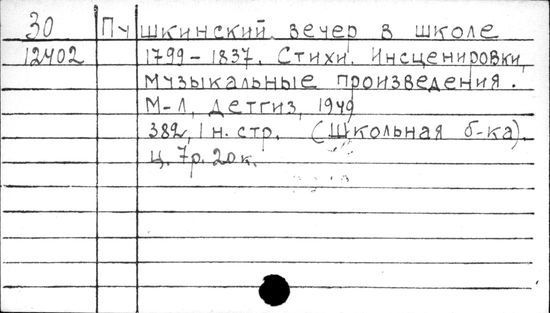 30 Пушкинский вечер в школе
12402 1799-1837. Стихи. Инсценировки,
музыкальные произведения.
М-Л, Детгиз, 1949
382, 1 н. стр. (Школьная б-ка).
Ц. 7р. 20к.